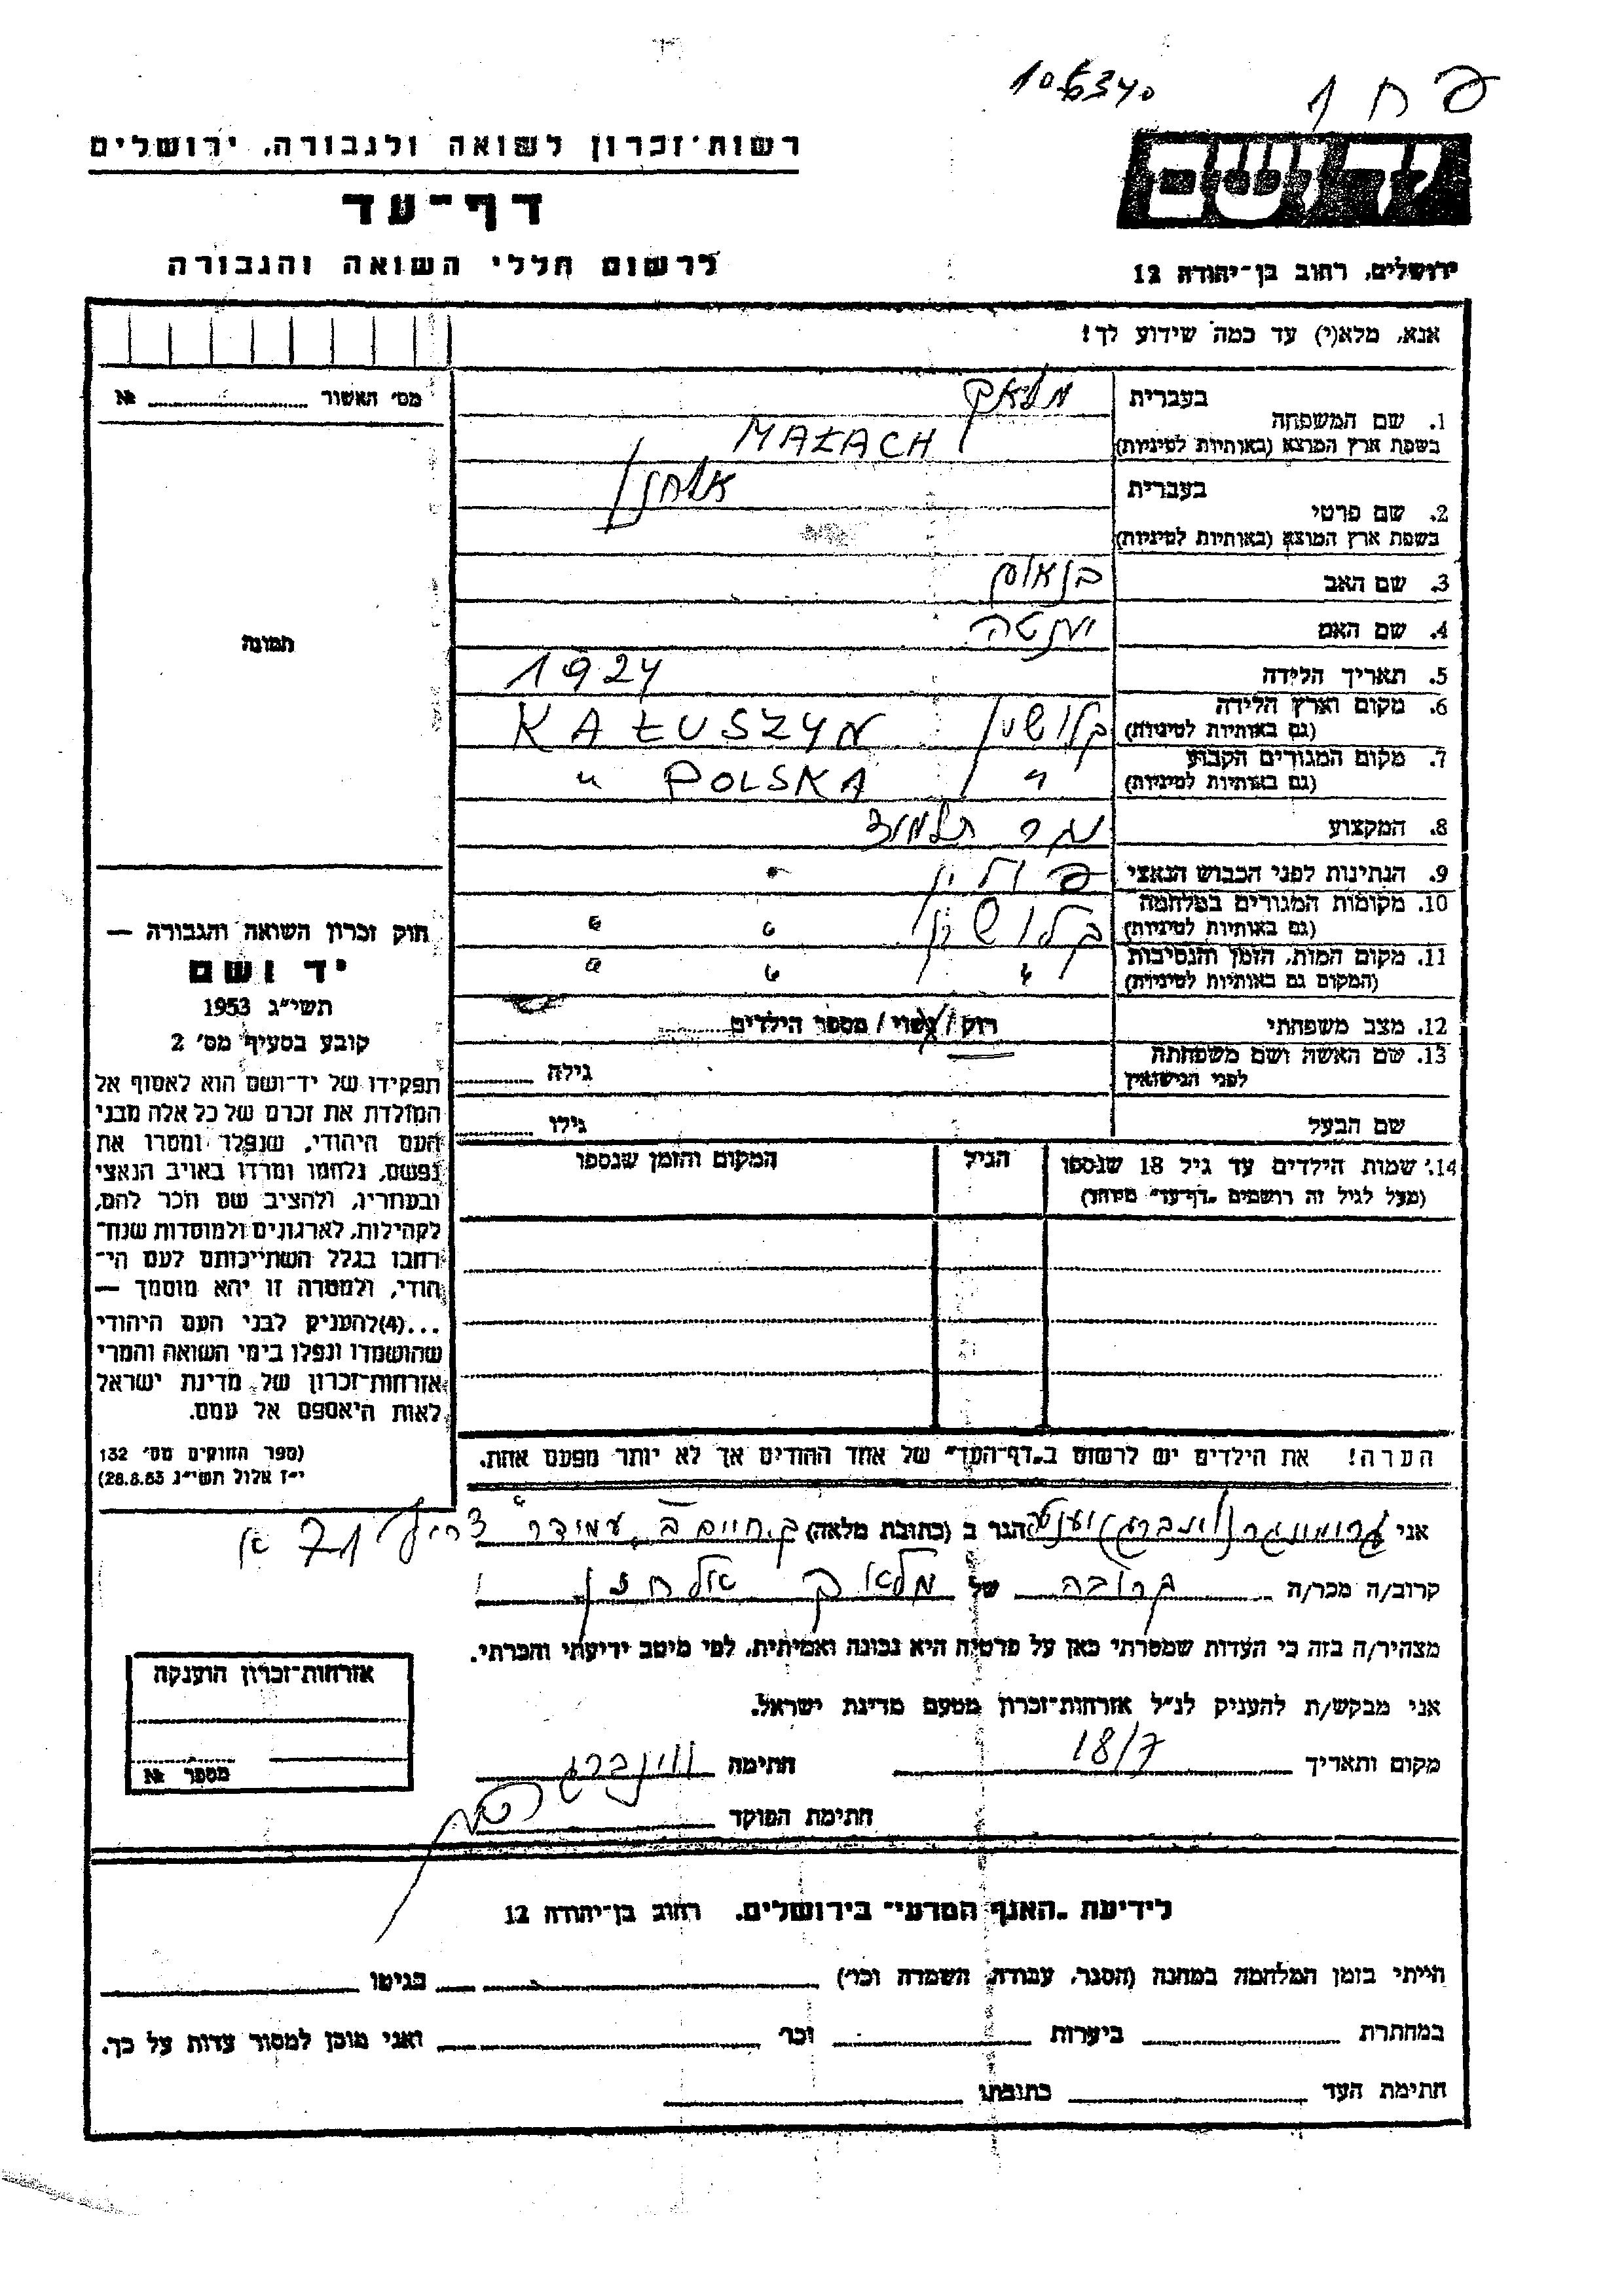 106340
פ ח 1
רשות־זכרון לשואה ולגבורה, ירושלים
דף־עד
לרשום חללי השואה והגבורה
יד ושם
ירושלים, רחוב בן־יהודה 12
אנא, מלא(י) עד כמה שידוע לך!
מס׳ האשור № 
1. שם המשפחה בעברית מלאך
בשפת ארץ המוצא (באותיות לטיניות) MAŁACH
2. שם פרטי בעברית אלחנן
בשפת ארץ המוצא (באותיות לטיניות)
3. שם האב
4. שם האם יענטה
5. תאריך הלידה 1924
6. מקום וארץ הלידה (גם באותיות לטיניות) קלושין KAŁUSZYN
7. מקום המגורים הקבוע (גם באותיות לטיניות) " POLSKA "
8. המקצוע תלמוד
9. הנתינות לפני הכבוש הנאצי פולין
10. מקומות המגורים במלחמה (גם באותיות לטיניות) קלושין " "
11. מקום המות, הזמן והנסיבות (המקום גם באותיות לטיניות) " " "
12. מצב משפחתי רוק / נשוי / מספר הילדים
13. שם האשה ושם משפחתה לפני הנישואין גילה
שם הבעל גילו
14. שמות הילדים עד גיל 18 שנספו הגיל המקום והזמן שנספו
(מעל לגיל זה רושמים „דף־עד״ מיוחד)
תמונה
חוק זכרון השואה והגבורה —
יד ושם
תשי״ג 1953
קובע בסעיף מס׳ 2
תפקידו של יד־ושם הוא לאסוף אל
המולדת את זכרם של כל אלה מבני
העם היהודי, שנפלו ומסרו את
נפשם, נלחמו ומרדו באויב הנאצי
ובעוזריו, ולהציב שם וזכר להם,
לקהילות, לארגונים ולמוסדות שנח־
רבו בגלל השתייכותם לעם הי־
הודי, ולמטרה זו יהא מוסמך —
...(4)להעניק לבני העם היהודי
שהושמדו ונפלו בימי השואה והמרי
אזרחות־זכרון של מדינת ישראל
לאות היאספם אל עמם.
(ספר החוקים מס׳ 132
י״ז אלול תשי״ג 28.8.53)
הערה! את הילדים יש לרשום ב„דף־העד״ של אחד ההורים אך לא יותר מפעם אחת.
אני (וינברג) יענטה הגר ב (כתובת מלאה) ק. חיים ב׳ עמידר צריף 71 א
קרוב/ה מכר/ה קרובה של מלאך אלחנן
מצהיר/ה בזה כי העדות שמסרתי כאן על פרטיה היא נכונה ואמיתית, לפי מיטב ידיעתי והכרתי.
אני מבקש/ת להעניק לנ״ל אזרחות־זכרון מטעם מדינת ישראל.
מקום ותאריך 18/7 חתימה ווינברג
חתימת הפוקד
אזרחות־זכרון הוענקה
מספר №
לידיעת „האגף המדעי״ בירושלים, רחוב בן־יהודה 12
הייתי בזמן המלחמה במחנה (הסגר, עבודה, השמדה וכו׳) בגיטו
במחתרת ביערות וכו׳ ואני מוכן למסור עדות על כך.
חתימת העד כתובתו